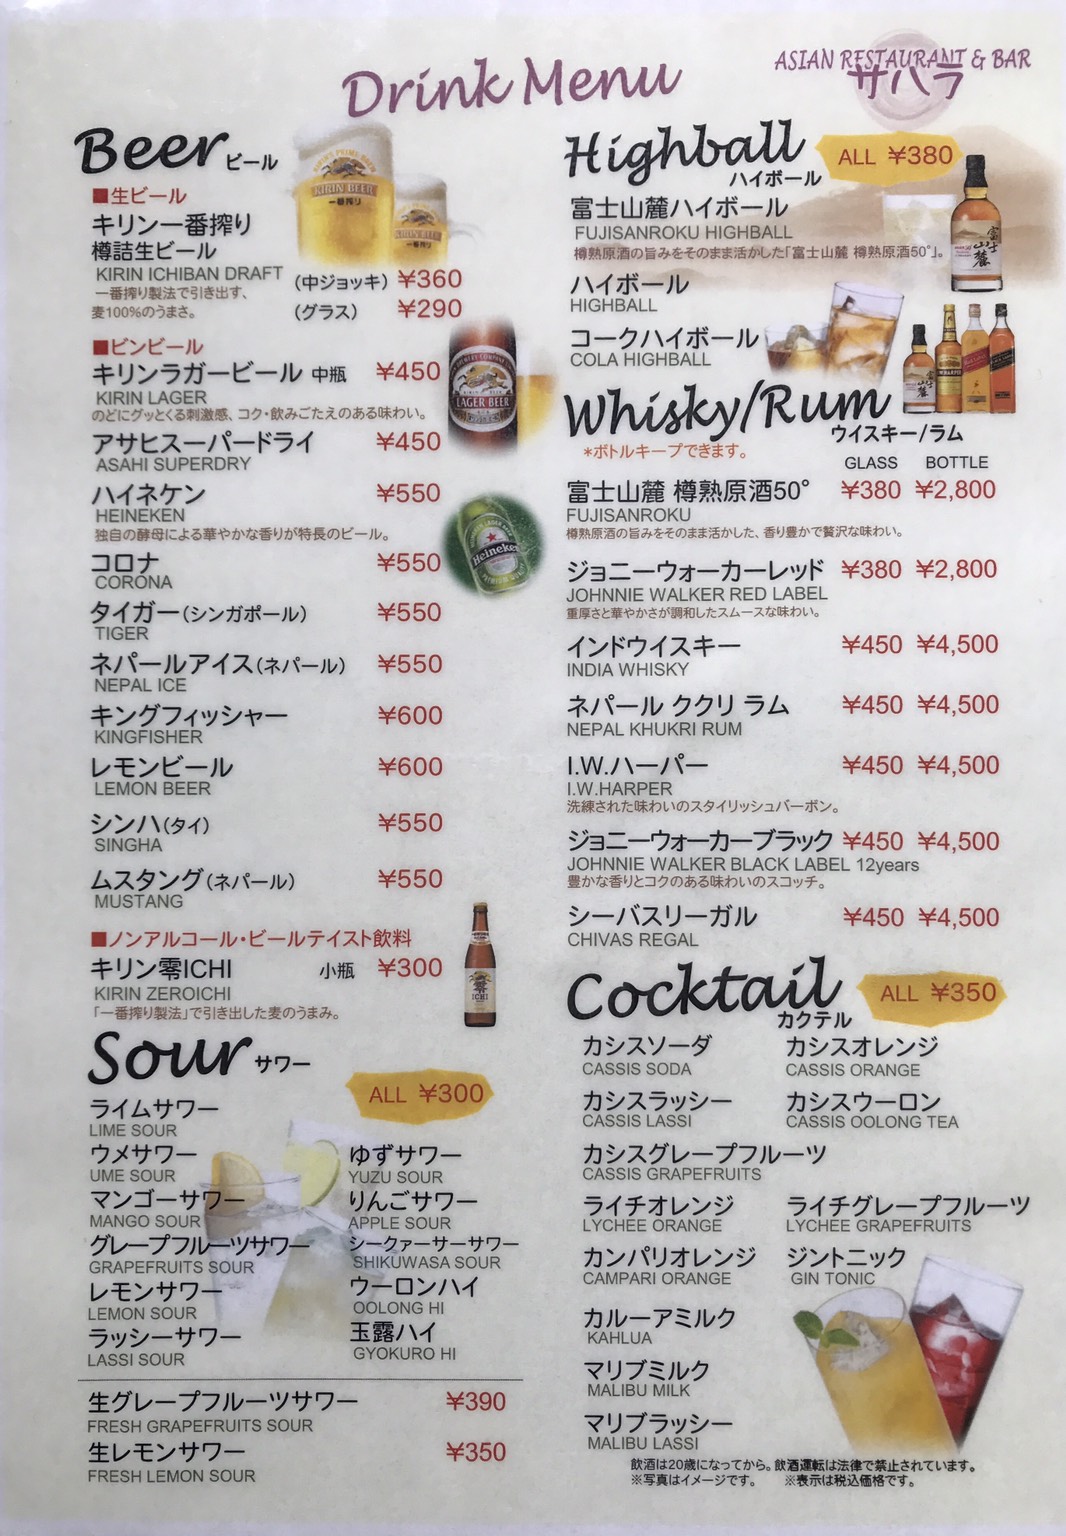 Drink Menu
ASIAN RESTAURANT & BAR
サハラ
Beer ビール
■生ビール
キリン一番搾り
樽詰生ビール
KIRIN ICHIBAN DRAFT
(中ジョッキ) ¥360
一番搾り製法で引き出す、
麦100%のうまさ。
(グラス) ¥290
■ビンビール
キリンラガービール 中瓶 ¥450
KIRIN LAGER
のどにグッとくる刺激感、コク・飲みごたえのある味わい。
アサヒスーパードライ ¥450
ASAHI SUPERDRY
ハイネケン ¥550
HEINEKEN
独自の酵母による華やかな香りが特長のビール。
コロナ ¥550
CORONA
タイガー(シンガポール) ¥550
TIGER
ネパールアイス(ネパール) ¥550
NEPAL ICE
キングフィッシャー ¥600
KINGFISHER
レモンビール ¥600
LEMON BEER
シンハ(タイ) ¥550
SINGHA
ムスタング(ネパール) ¥550
MUSTANG
■ノンアルコール・ビールテイスト飲料
キリン零ICHI 小瓶 ¥300
KIRIN ZEROICHI
「一番搾り製法」で引き出した麦のうまみ。
Sour サワー
ALL ¥300
ライムサワー
LIME SOUR
ウメサワー
UME SOUR
マンゴーサワー
MANGO SOUR
グレープフルーツサワー
GRAPEFRUITS SOUR
レモンサワー
LEMON SOUR
ラッシーサワー
LASSI SOUR
ゆずサワー
YUZU SOUR
りんごサワー
APPLE SOUR
シークァーサーサワー
SHIKUWASA SOUR
ウーロンハイ
OOLONG HI
玉露ハイ
GYOKURO HI
生グレープフルーツサワー ¥390
FRESH GRAPEFRUITS SOUR
生レモンサワー ¥350
FRESH LEMON SOUR
Highball
ハイボール
ALL ¥380
富士山麓ハイボール
FUJISANROKU HIGHBALL
樽熟原酒の旨みをそのまま活かした「富士山麓 樽熟原酒50°」。
ハイボール
HIGHBALL
コークハイボール
COLA HIGHBALL
Whisky/Rum
ウイスキー/ラム
*ボトルキープできます。
GLASS BOTTLE
富士山麓 樽熟原酒50° ¥380 ¥2,800
FUJISANROKU
樽熟原酒の旨みをそのまま活かした、香り豊かで贅沢な味わい。
ジョニーウォーカーレッド ¥380 ¥2,800
JOHNNIE WALKER RED LABEL
重厚さと華やかさが調和したスムースな味わい。
インドウイスキー ¥450 ¥4,500
INDIA WHISKY
ネパール ククリ ラム ¥450 ¥4,500
NEPAL KHUKRI RUM
I.W.ハーパー ¥450 ¥4,500
I.W.HARPER
洗練された味わいのスタイリッシュバーボン。
ジョニーウォーカーブラック ¥450 ¥4,500
JOHNNIE WALKER BLACK LABEL 12years
豊かな香りとコクのある味わいのスコッチ。
シーバスリーガル ¥450 ¥4,500
CHIVAS REGAL
Cocktail
カクテル
ALL ¥350
カシスソーダ カシスオレンジ
CASSIS SODA CASSIS ORANGE
カシスラッシー カシスウーロン
CASSIS LASSI CASSIS OOLONG TEA
カシスグレープフルーツ
CASSIS GRAPEFRUITS
ライチオレンジ ライチグレープフルーツ
LYCHEE ORANGE LYCHEE GRAPEFRUITS
カンパリオレンジ ジントニック
CAMPARI ORANGE GIN TONIC
カルーアミルク
KAHLUA
マリブミルク
MALIBU MILK
マリブラッシー
MALIBU LASSI
飲酒は20歳になってから。飲酒運転は法律で禁止されています。
※写真はイメージです。 ※表示は税込価格です。
KIRIN BEER
一番搾り
LAGER BEER
Heineken
富士山麓
ICHI